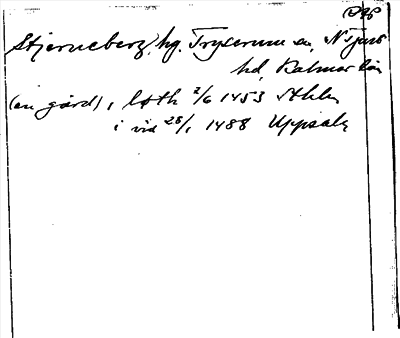 Stjerneberg, hg. Tryserum sn, N Tjust
hd, Kalmar län
(en gård), 1 loth 2/6 1453 Sthlm
i vid 28/1 1488 Uppsala